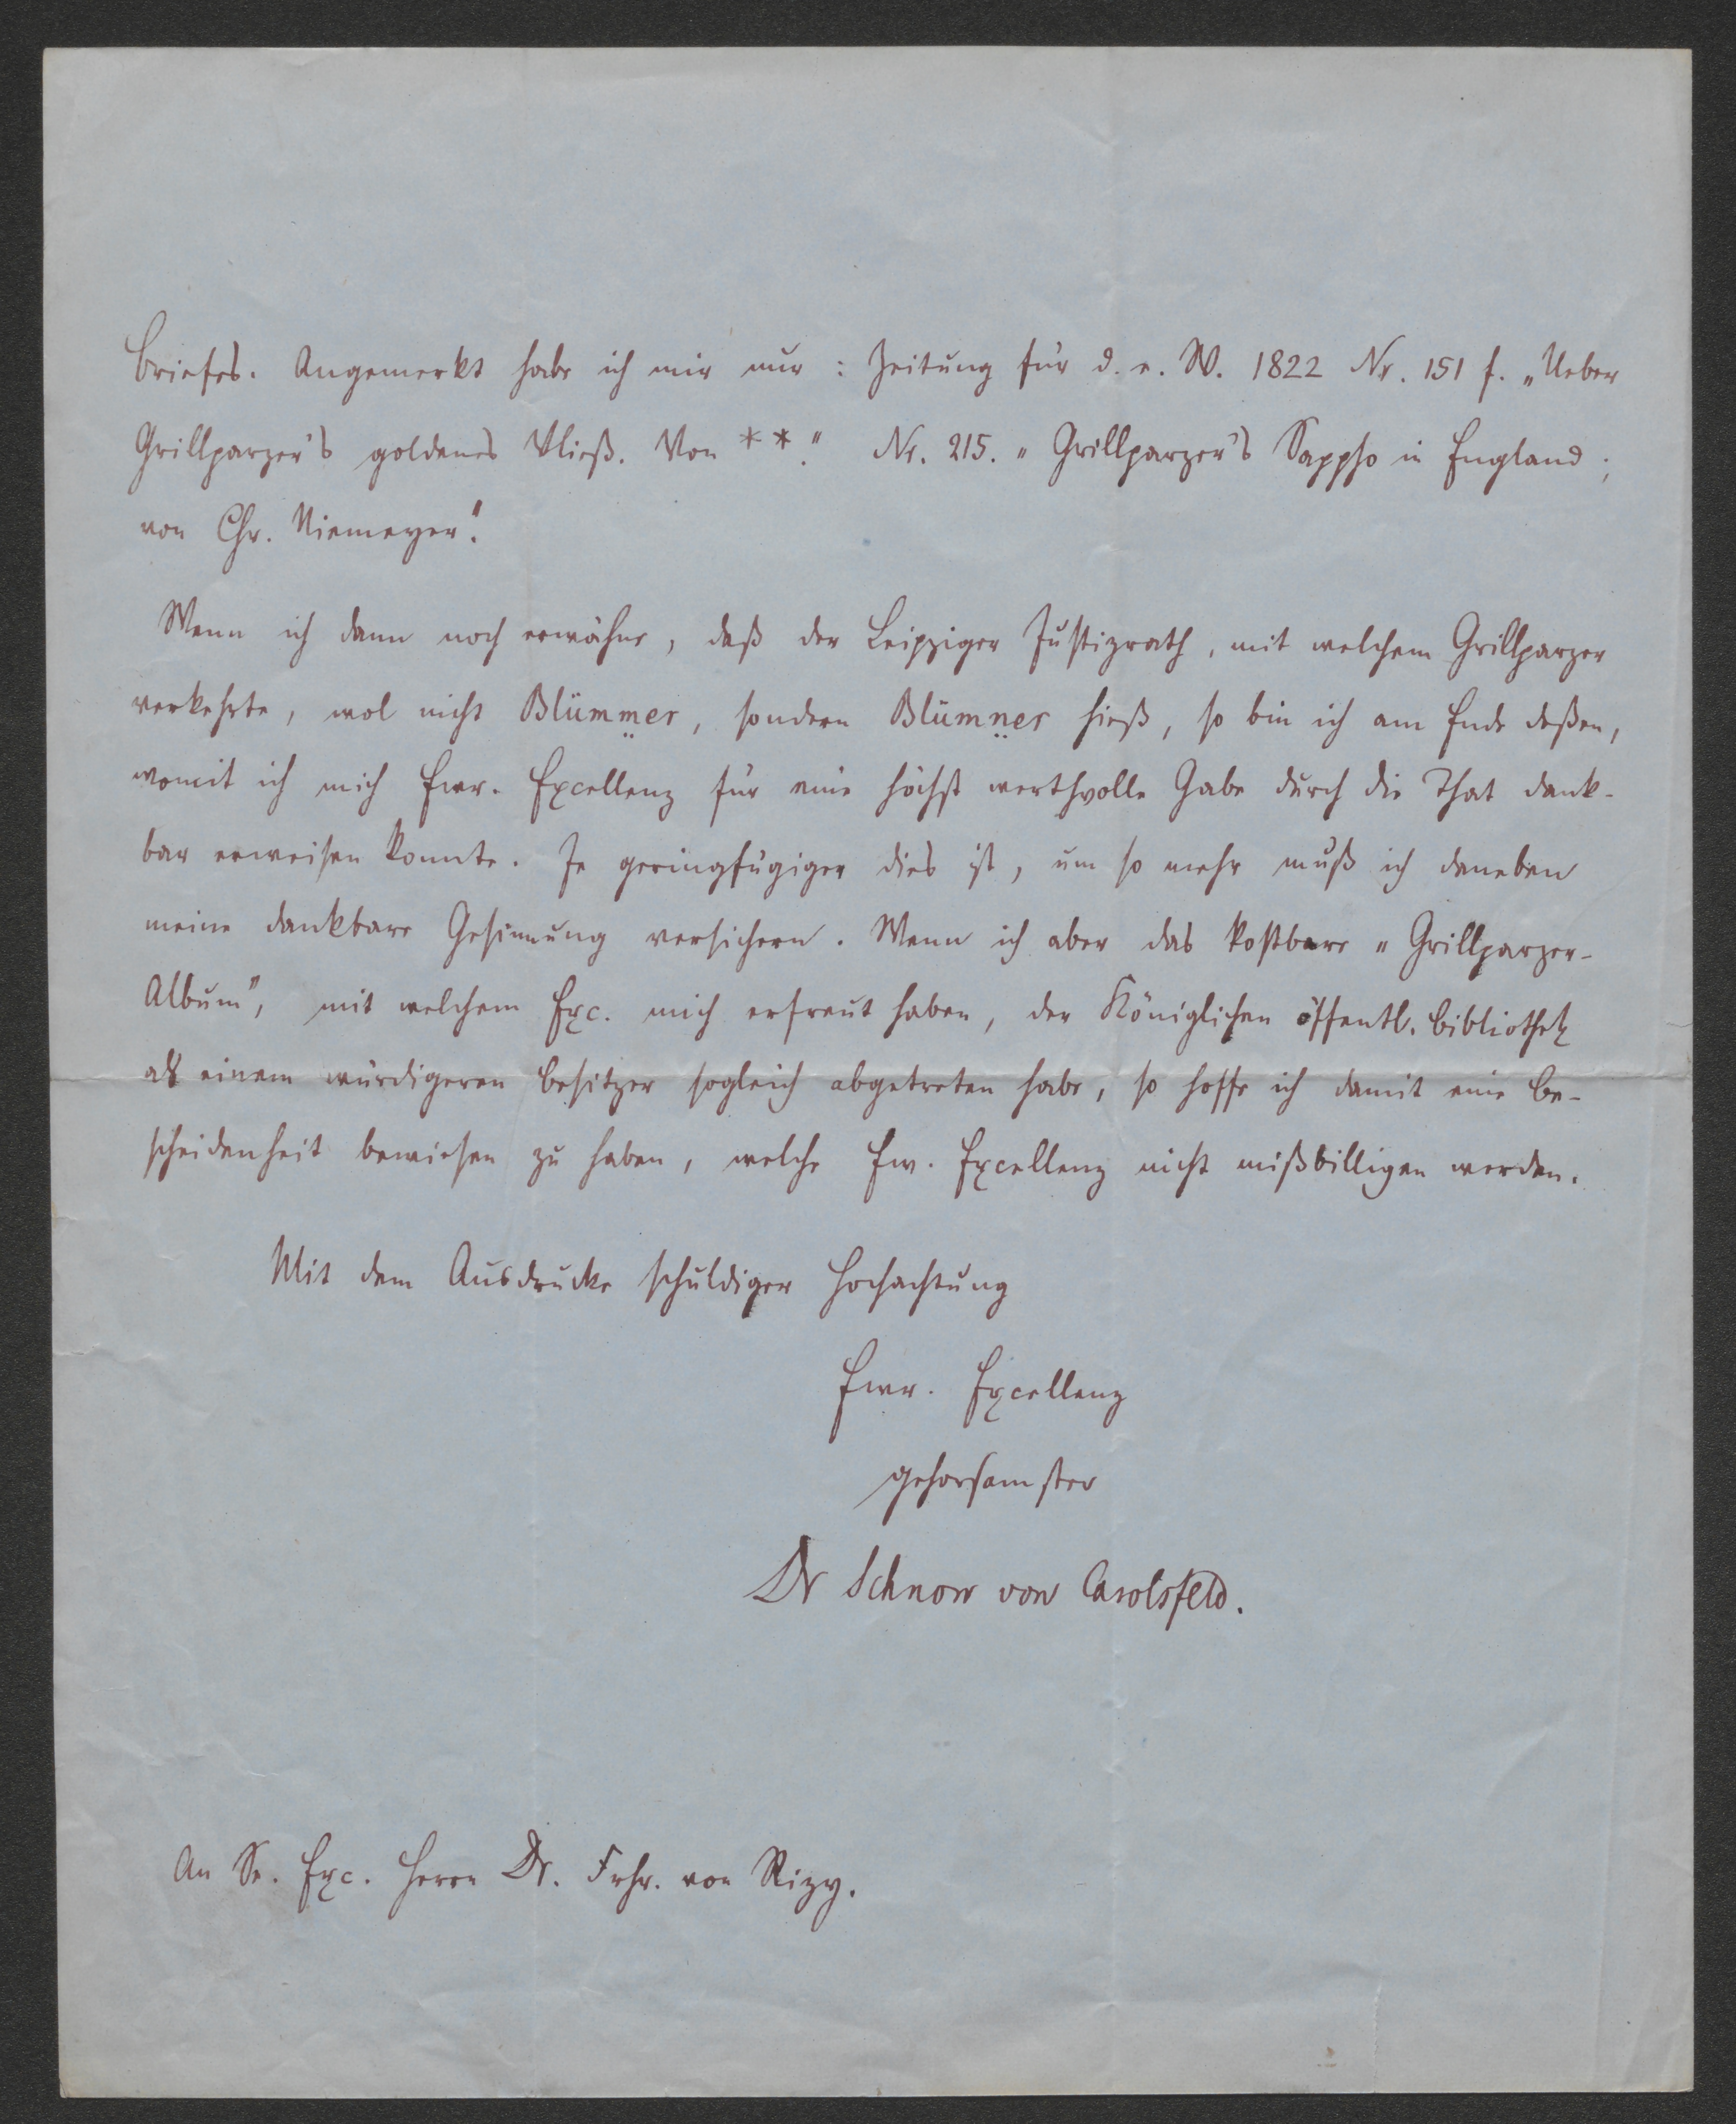 Briefes. Angemerkt habe ich mir nur: Zeitung für d. e. W. 1822 Nr. 151 f. „Ueber
Grillparzer's goldenes Vließ. Von **." Nr. 215. „Grillparzer's Sappho in England;
von Chr. Niemeyer".
Wenn ich dann noch erwähne, daß der Leipziger Justizrath, mit welchem Grillparzer
verkehrte, wol nicht Blümmer, sondern Blümner hieß, so bin ich am Ende deßen,
womit ich mich Ewr. Excellenz für eine höchst werthvolle Gabe durch die That dank-
bar erweisen konnte. Je geringfügiger dies ist, um so mehr muß ich daneben
meine dankbare Gesinnung versichern. Wenn ich aber das kostbare „Grillparzer-
Album", mit welchem Exc. mich erfreut haben, der Königlichen öffentl. Bibliothek
als einem würdigeren Besitzer sogleich abgetreten habe, so hoffe ich damit eine Be-
scheidenheit bewiesen zu haben, welche Ew. Excellenz nicht mißbilligen werden.
Mit dem Ausdrucke schuldiger Hochachtung
Ewr. Excellenz
gehorsamster
Dr Schnorr von Carolsfeld.
An Se. Exc. Herrn Dr. Frhr. von Rizy.